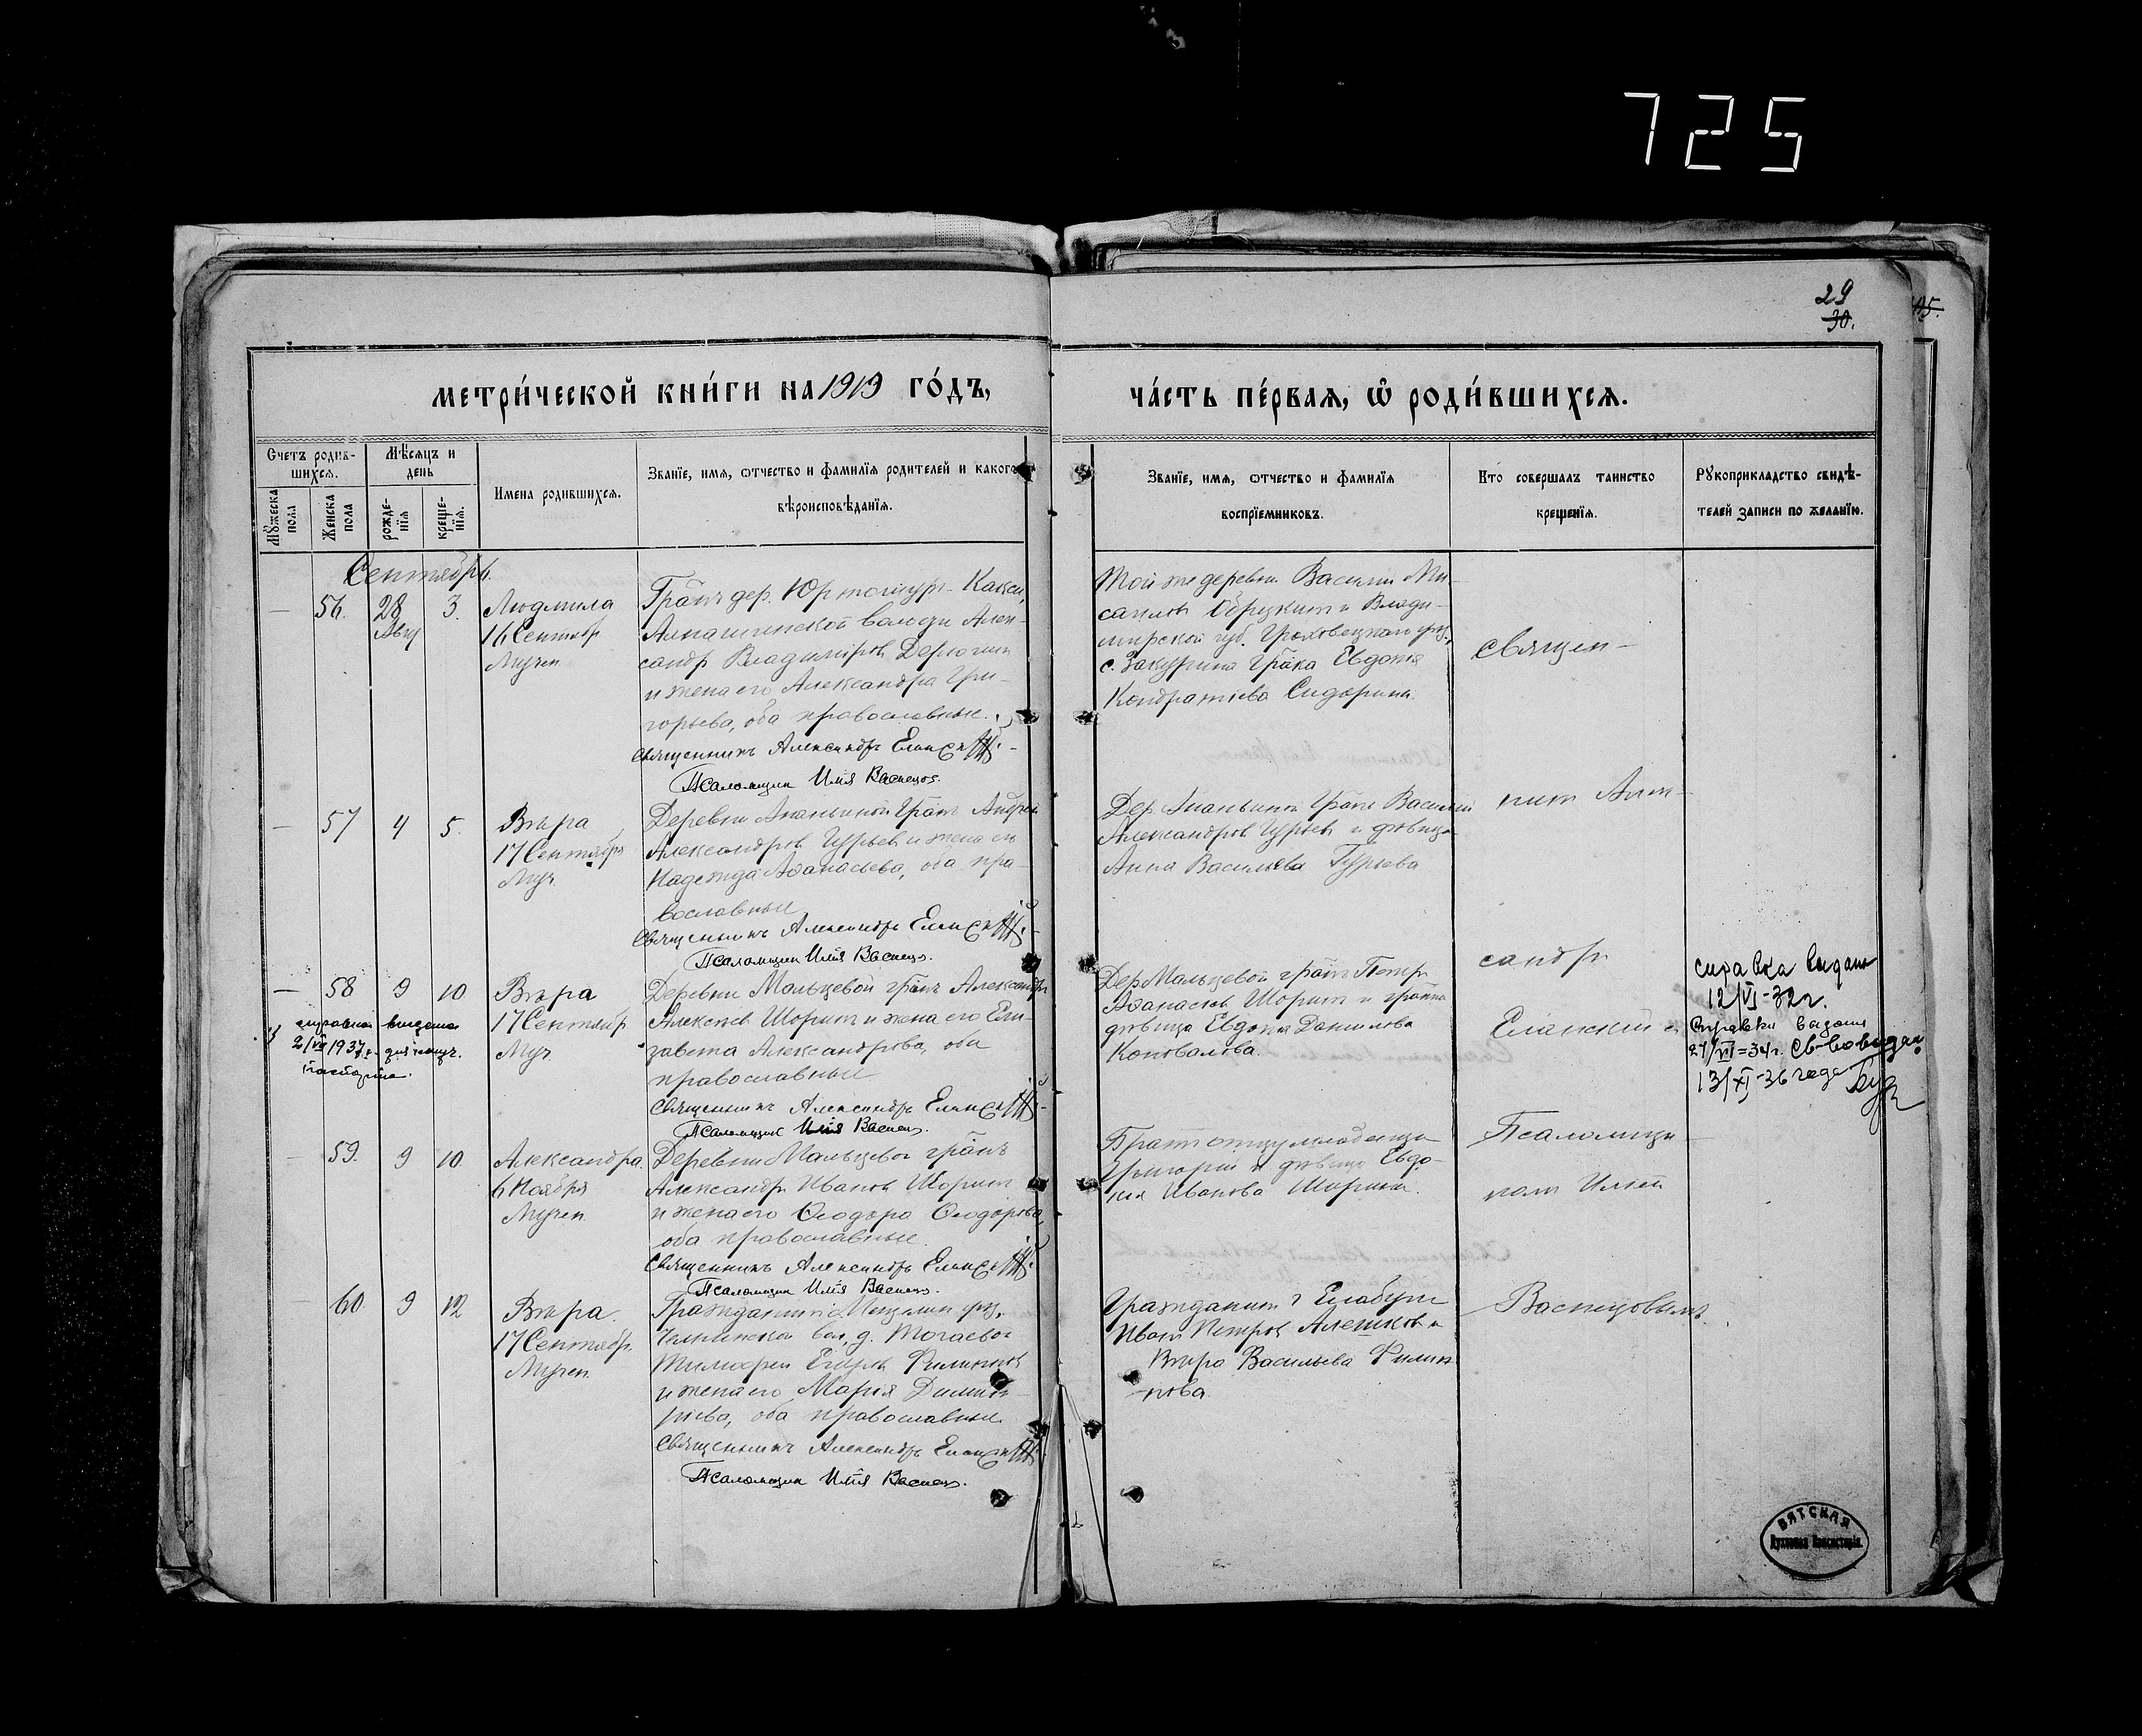 725
29
30.
метри́ческой кни́ги на 1919 го́дъ,
ча́сть пе́рвая, ѡ҆ роди́вшихся.
Счетъ родив-
шихся.
Мѣсяцъ и
день
Мужеска
пола
Женска
пола
рожде-
нія
креще-
нія.
Имена родившихся.
Званіе, имя, отчество и фамилія родителей и какого
вѣроисповѣданія.
Званіе, имя, отчество и фамилія
воспріемниковъ.
Кто совершалъ таинство
крещенія.
Рукоприкладство свидѣ-
телей записи по желанію.
Сентябрь.
56. 28 Авг 3.
Людмила
16 Сентябр
Мучен.
Граж дер.
волости Алек-
сандр Владиміров
и жена его Александра Гри-
горьева, оба православные.
Священникъ Александръ
Псаломщик Илія Васнецов.
Той же деревни Василій
и Влади-
мирской губ. Гроховецкаго уез.
с. Евдокія
Кондратьева Сидорина.
57 4 5.
Вѣра
17 Сентября
Муч.
Деревни Ананьиной Граж Андрей
Александров Гурьев и жена его
Надежда Аѳанасьева, оба пра-
вославные
Священникъ Александръ
Псаломщик Илія Васнецов.
Дер. Ананьиной Граж Василий
Александров Гурьев и дѣвица
Анна Васильева Гурьева
58 9 10
Вѣра
17 Сентябр
Муч.
справка выдана
2/VII 1937 г. для получ.
паспорта.
Деревни Мальцевой граж Александр
Алексѣев Шорин и жена его Ели-
завета Александрова, оба
православные
Священникъ Александръ
Псаломщик Илія Васнецов.
Дер Мальцевой граж Петр
Аѳанасьев Шорин и
дѣвица Евдокия Данилова
Коновалова.
справка выдана
12/VI-32 г.
Справка выдана
27/VI=34 г. Св-во выдан
13/XI-36 года
59. 9 10.
Александра.
6 Ноября
Мучен.
Деревни Мальцевой граж
Александр Иванов Шорин
и жена его Ѳеодора Ѳеодорова,
оба православные.
Священникъ Александръ
Псаломщик Илія Васнецов.
Брат отцу младенца
Григорий и дѣвица Евдо-
кия Иванова Шорина.
60. 9 12
Вѣра.
17 Сентябр.
Мучен.
Гражданин уез.
вол. д.
Тимоѳей Егоров Филиппов
и жена его Мария Димит-
риева, оба православные
Священникъ Александръ
Псаломщик Илія Васнецов.
Гражданин г Елабуги
Иван Петров Алешков и
Вѣра Васильева Филип-
пова.
Священ-
ник Алек-
сандр
Еланский с
Псаломщи-
ком Илией
Васнецовымъ.
ВЯТСКАЯ
Духовная Консисторія.